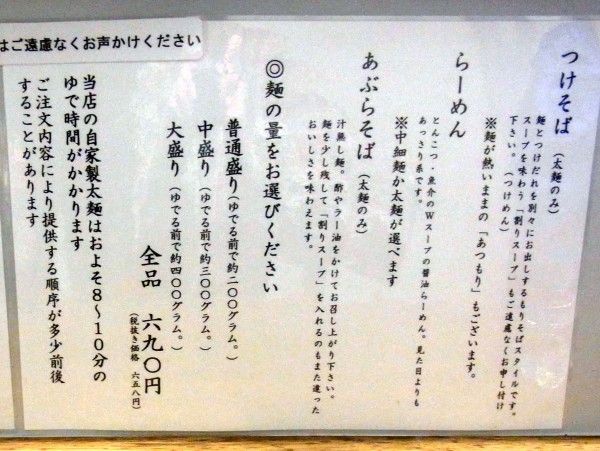 はご遠慮なくお声かけください
つけそば（太麺のみ）
麺とつけだれを別々にお出しするもりそばスタイルです。
スープを味わう「割りスープ」もご遠慮なくお申し付け
下さい。（つけめん）
※麺が熱いままの「あつもり」もございます。
らーめん
とんこつ・魚介のＷスープの醤油らーめん。見た目よりも
あっさり系です。
※中細麺か太麺が選べます
あぶらそば（太麺のみ）
汁無し麺。酢やラー油をかけてお召し上がり下さい。
麺を少し残して「割りスープ」を入れるのもまた違った
おいしさを味わえます。
◎麺の量をお選びください
普通盛り（ゆでる前で約二〇〇グラム。）
中盛り（ゆでる前で約三〇〇グラム。）
大盛り（ゆでる前で約四〇〇グラム。）
全品　六九〇円
（税抜き価格　六五八円）
当店の自家製太麺はおよそ８～１０分の
ゆで時間がかかります
ご注文内容により提供する順序が多少前後
することがあります